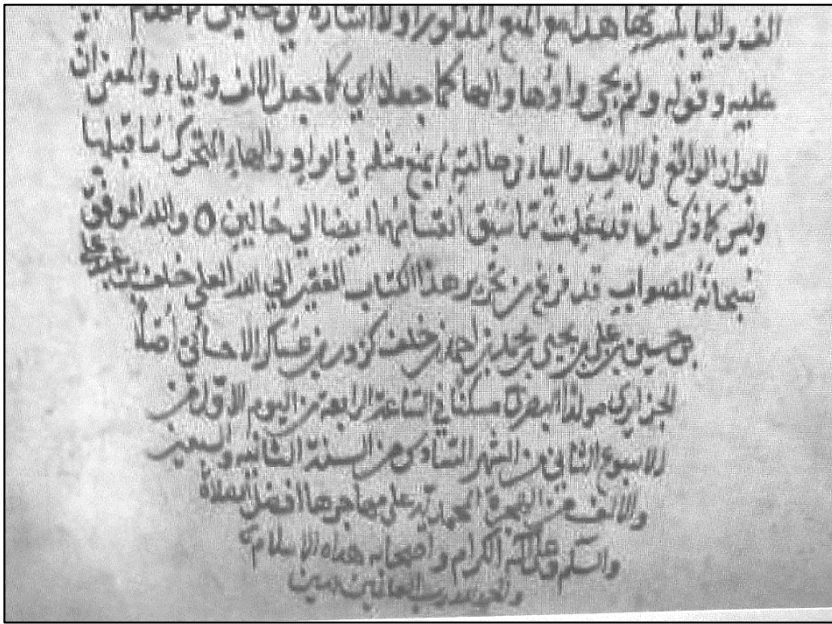 الف واليا بكسرتها هذا مع المنع المذكور اولا اشارة الى حالين
عليه وقوله ولم يجى واوها والها كما جعلا اي كما جعل الالف والياء والمعنى ان
الجواز الواقع فى الالف والياء فى حالته لم يمنع مثله فى الواو والهاء المتحرك ما قبلها
وليس كما ذكر بل قد علمت مما سبق انقسامهما ايضا الى حالين ٥ والله الموفق
سبحانه للصواب قد فرغ من تحرير هذا الكتاب الفقير الى الله العلي خلف بن عبد علي
بن حسين بن علي بن يحيى بن محمد بن احمد بن خلف بن عساكر الاحسائي اصلا
الجزايري مولدا البصري مسكنا في الساعة الرابعة من اليوم الاول من
الاسبوع الثاني من الشهر السادس من السنة الثانية والسبعين
والالف من الهجرة المحمدية على مهاجرها افضل الصلاة
والسلم وعلى آله الكرام واصحابه هداة الاسلام
والحمد لله رب العالمين امين